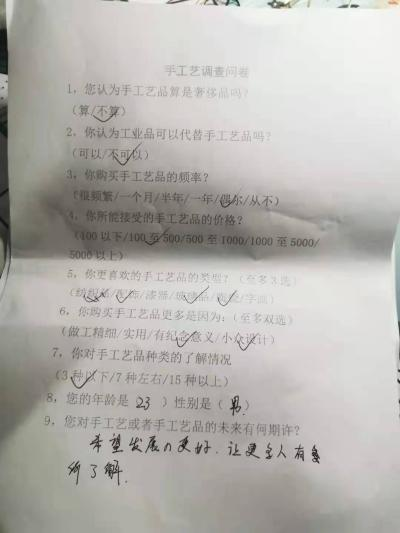 手工艺调查问卷
1，您认为手工艺品算是奢侈品吗？
（算/不算）
2，你认为工业品可以代替手工艺品吗？
（可以/不可以）
3，你购买手工艺品的频率？
（很频繁/一个月/半年/一年/偶尔/从不）
4，你所能接受的手工艺品的价格？
（100以下/100至500/500至1000/1000至5000/
5000以上）
5，你更喜欢的手工艺品的类型？（至多3选）
（纺织品/服饰/漆器/玻璃品/陶瓷/字画）
6，你购买手工艺品更多是因为：（至多双选）
（做工精细/实用/有纪念意义/小众设计）
7，你对手工艺品种类的了解情况
（3种以下/7种左右/15种以上）
8，您的年龄是（23）性别是（男）
9，您对手工艺或者手工艺品的未来有何期许？
希望发展的更好，让更多人有
所了解.